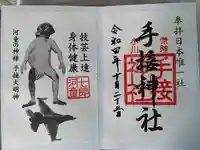 奉拝日本唯一社
手接神社
令和四年十月二十三日
技芸上達
身体健康
河童の神様 手接大明神